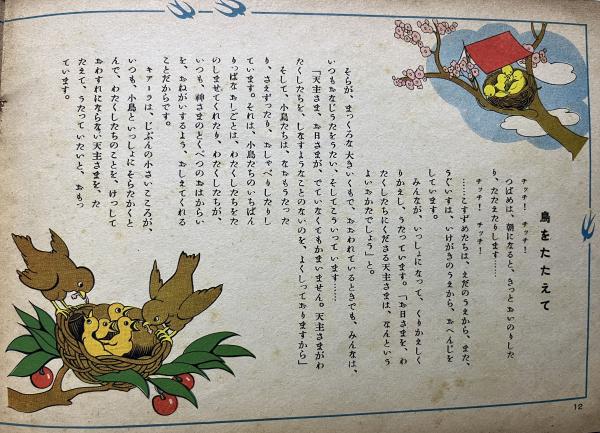 鳥をたたえて
チッチ! チッチ!
つばめは、朝になると、きっとおいのりした
り、たたえたりします……
チッチ! チッチ!
……こすずめたちは、えだのうえから、また、
うぐいすは、いけがきのうえから、おへんじを
しています。
みんなが、いっしょになって、くりかえしく
りかえし、うたっています。「お日さまを、わ
たくしたちにくださる天主さまは、なんという
よいおかたでしょう」と。
そらが、まっくろな大きいくもで、おおわれているときでも、みんなは、
いつもおなじうたをうたい、そしてこういっています……
「天主さま、お日さまが、でていなくてもかまいません。天主さまがわ
たくしたちを、しなすようなことのないのを、よくしっておりますから」
そして、小鳥たちは、なおもうたった
り、さえずったり、おしゃべりしたりし
ています。それは、小鳥たちのいちばん
りっぱなおしごとは、わたくしたちをた
のしませてくれたり、わたくしたちが、
いつも、神さまのとくべつのおはからい
を、おねがいするよう、おしえてくれる
ことだからです。
キアーラは、じぶんの小さいこころが、
いつも、小鳥といっしょにそらたかくと
んで、わたくしたちのことを、けっして
おわすれにならない天主さまを、た
たえて、うたっていたいと、おもっ
ています。
12